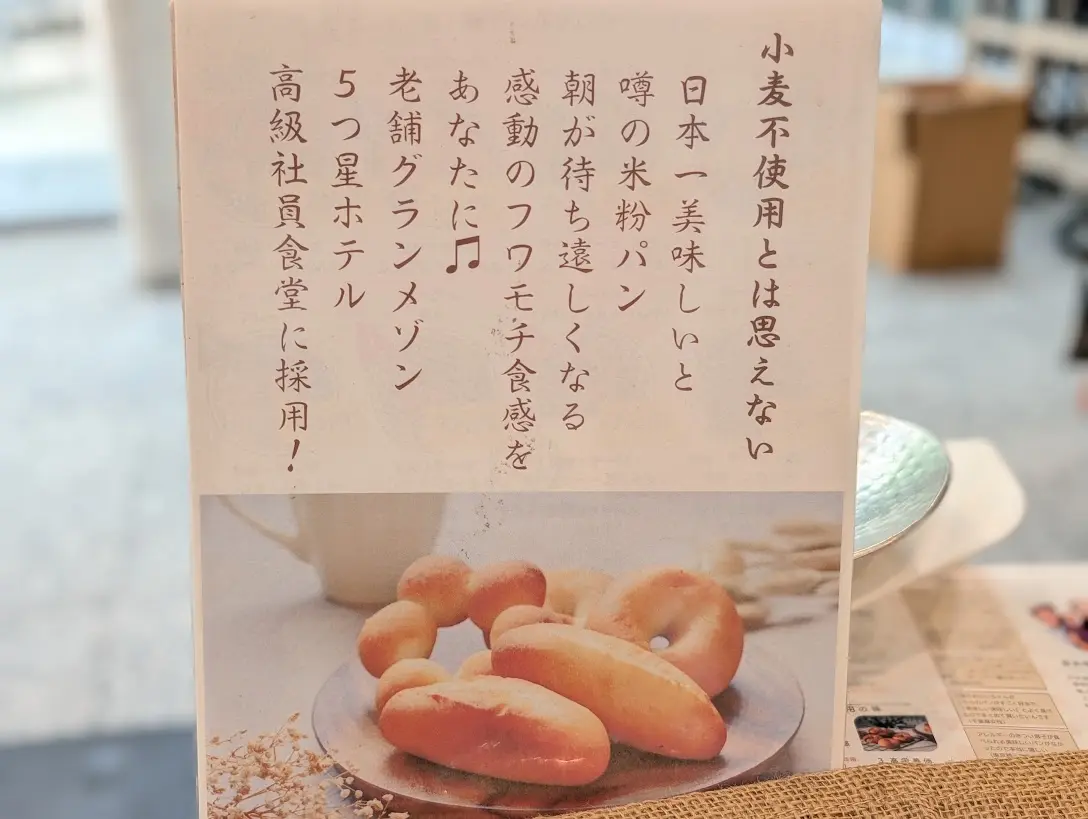 小麦不使用とは思えない
日本一美味しいと
噂の米粉パン
朝が待ち遠しくなる
感動のフワモチ食感を
あなたに♫
老舗グランメゾン
5つ星ホテル
高級社員食堂に採用!